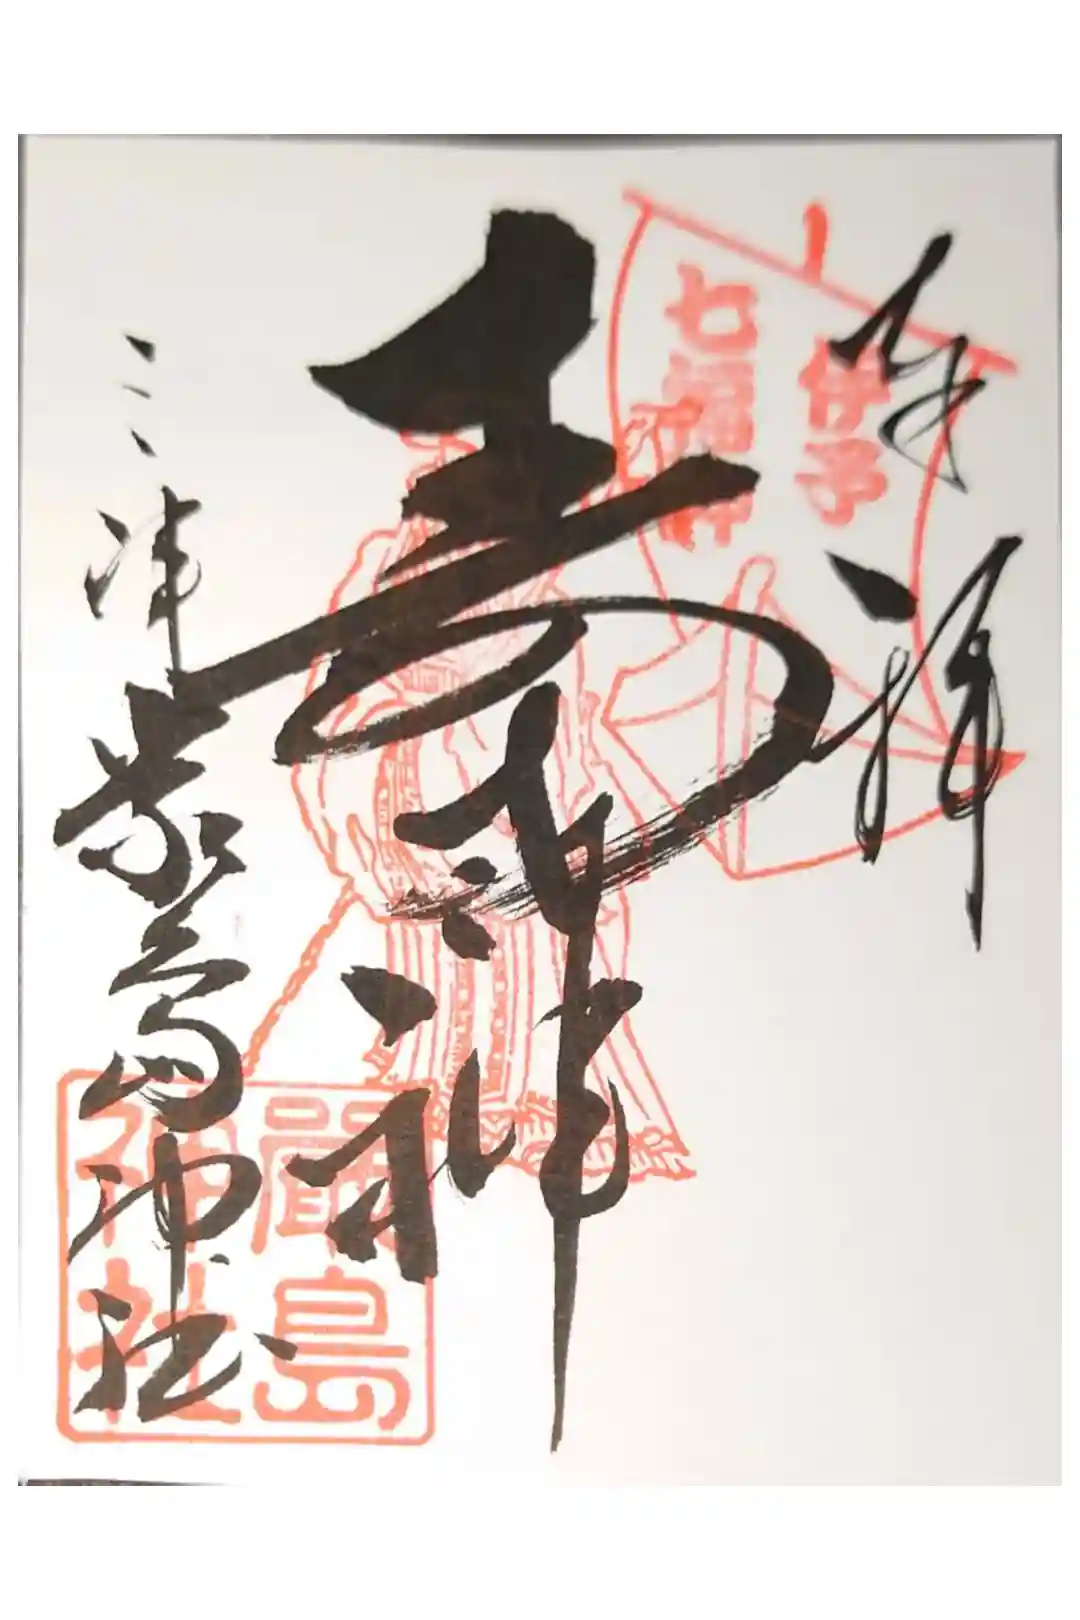 奉拝
伊予
七福神
寿
三津厳島神社
嚴島
神社